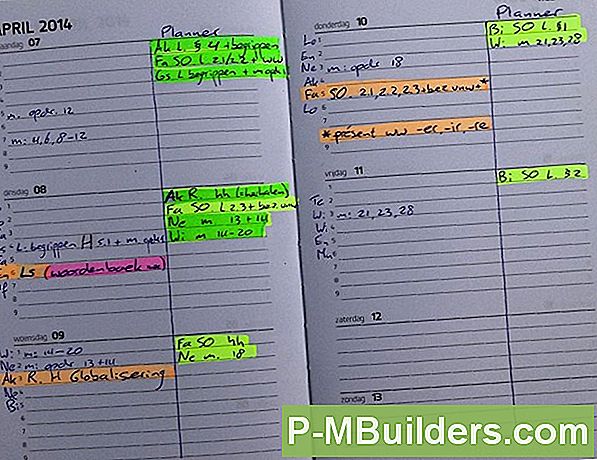 APRIL 2014
Planner
maandag 07
Ak L § 4 + begrippen
Fa SO L 2.1/2.2 + ww
Gs L begrippen + m opdr
n. opdr. 12
m: 4,6,8-12
dinsdag 08
Ak R. hh
Fa SO L 2.3 + bez. vnw
Ne m 13 + 14
Wi m 14-20
L. begrippen H 5.1 + m. opdr
En: Ls (woordenboek mee)
woensdag 09
Fa SO hh
Ne m. 18
Wi m: 14-20
Ne m: opdr 13 + 14
Ak: R. H Globalisering
Ne
Bi
Planner
donderdag 10
Bi SO L. §1
Wi m 21,23,28
Lo
En
Ne m: opdr 18
Ak
Fa SO. 2.1, 2.2, 2.3 + bez vnw + *
Lo
* présent ww -er, -ir, -re
vrijdag 11
Bi SO L §2
Te
Wi: m: 21, 23, 28
Gs
En
Mu
zaterdag 12
zondag 13
P-MBuilders.com